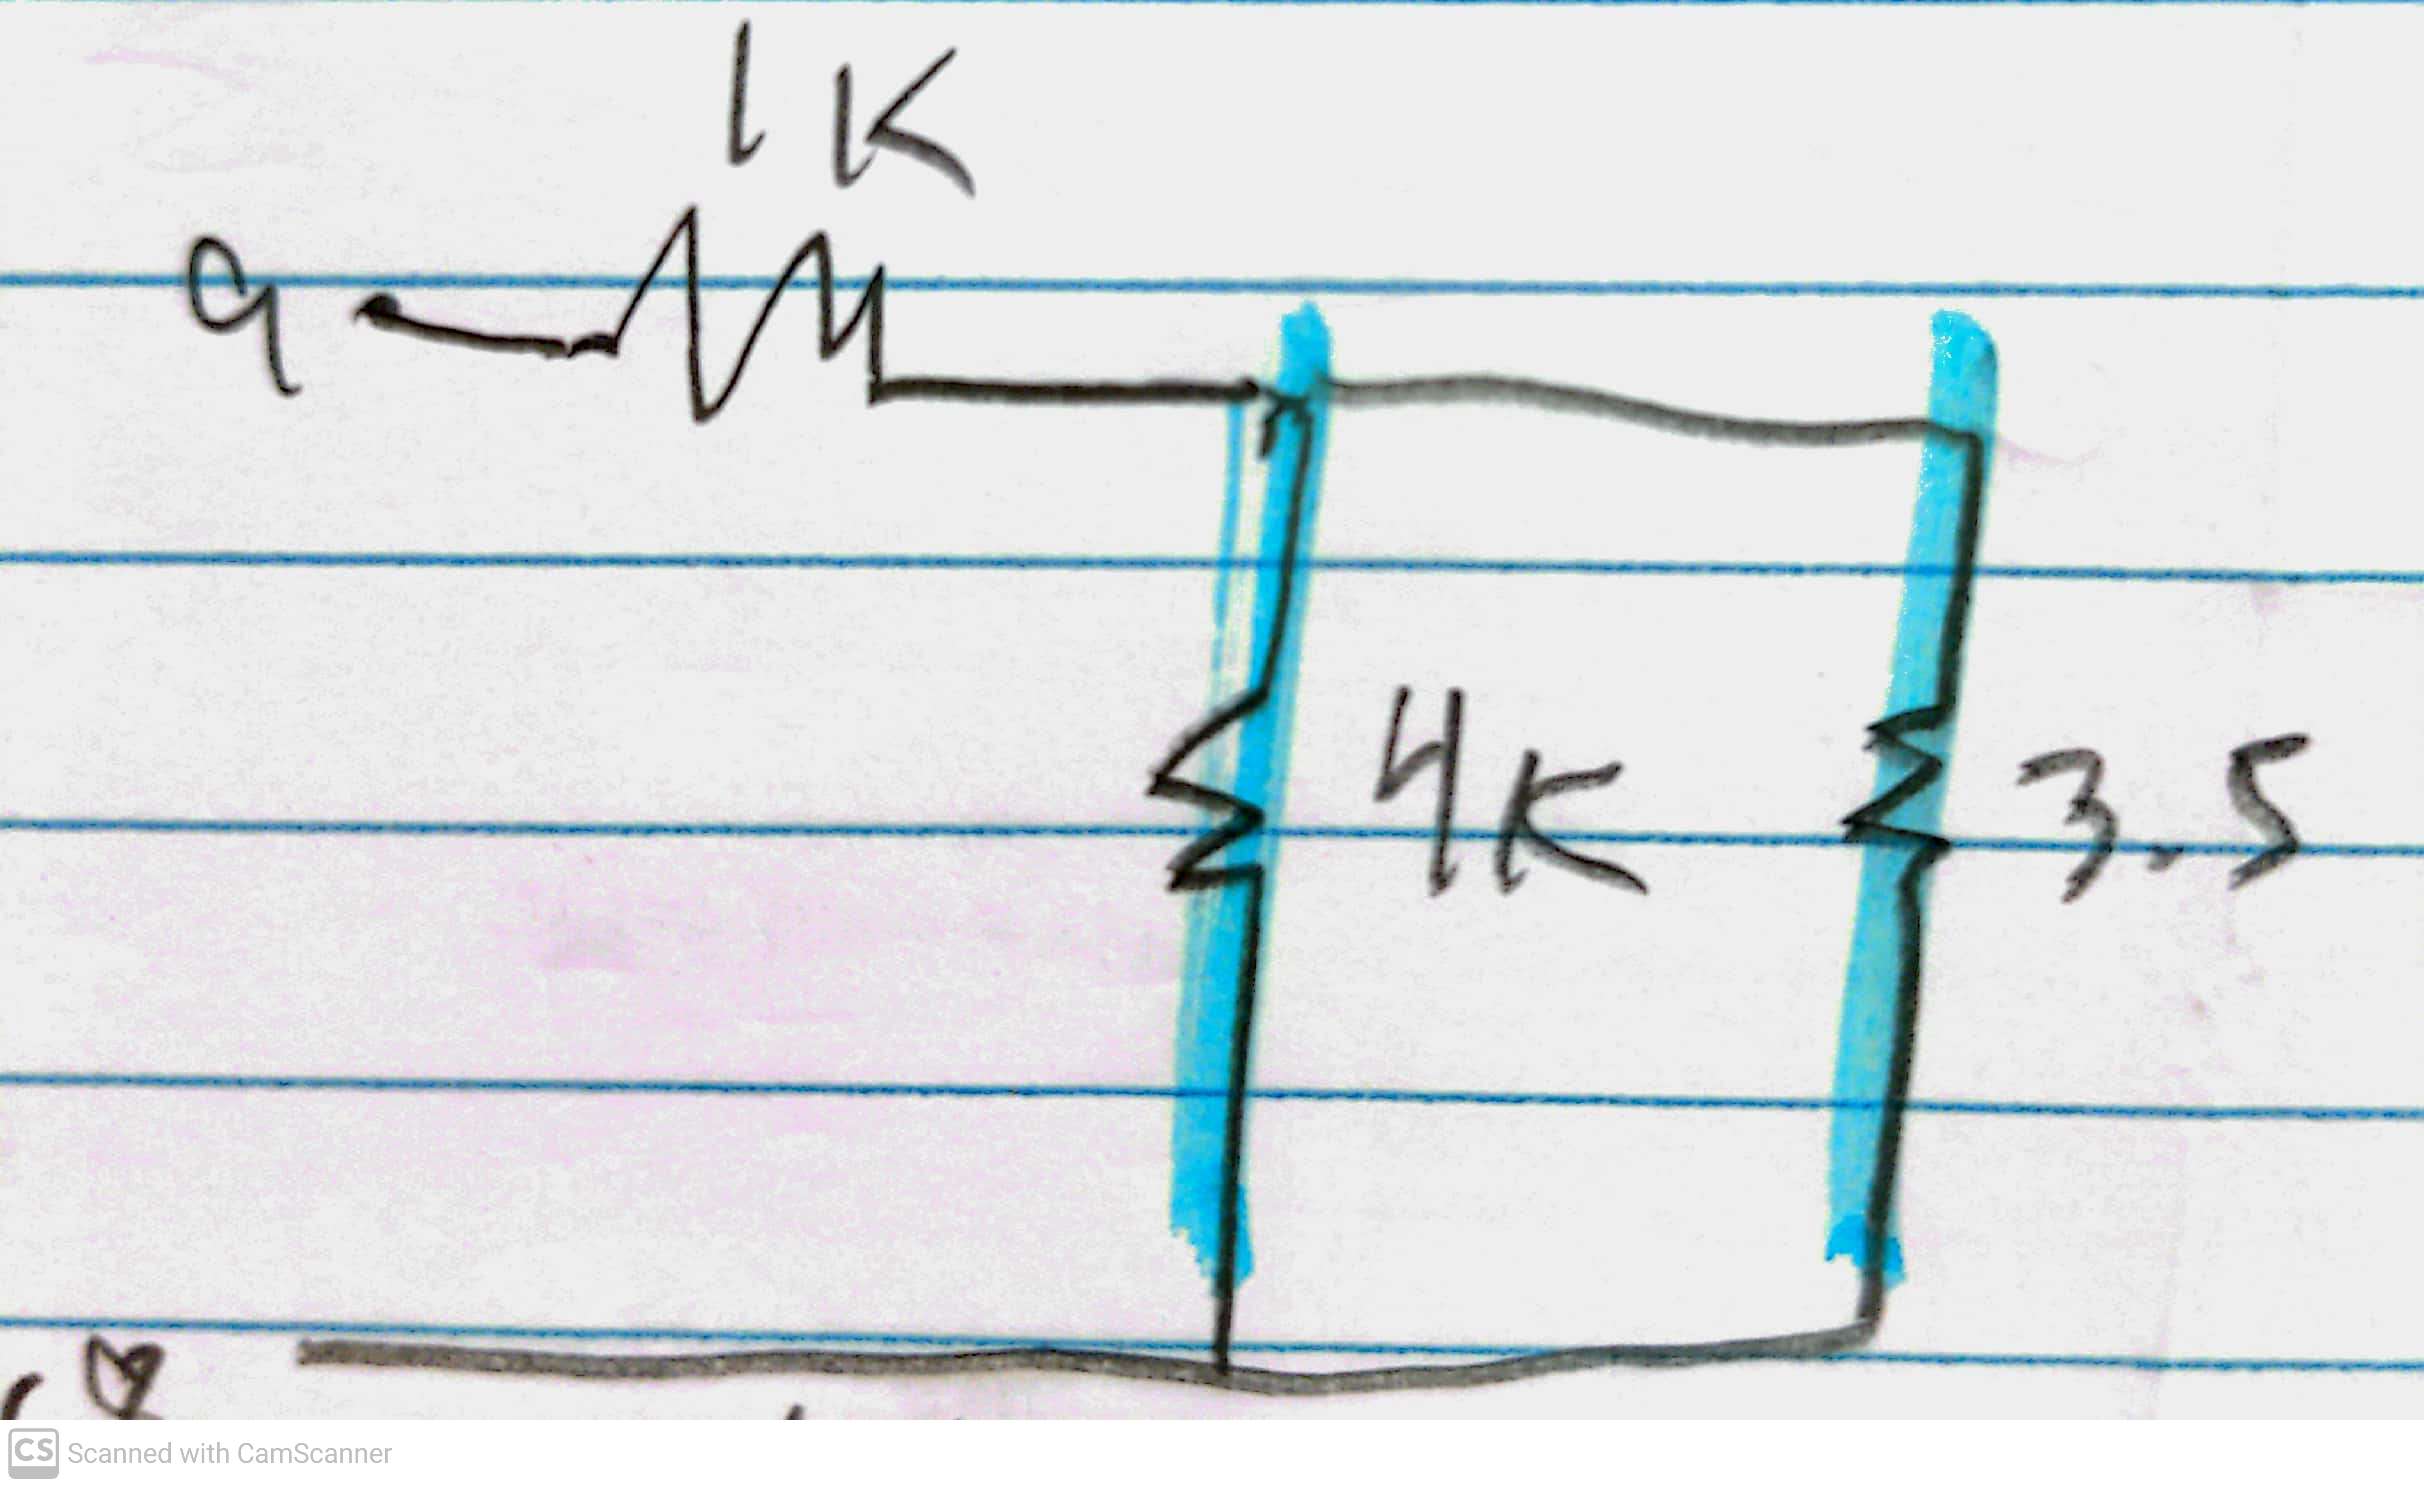 1K
a
4K
3.5
CS Scanned with CamScanner